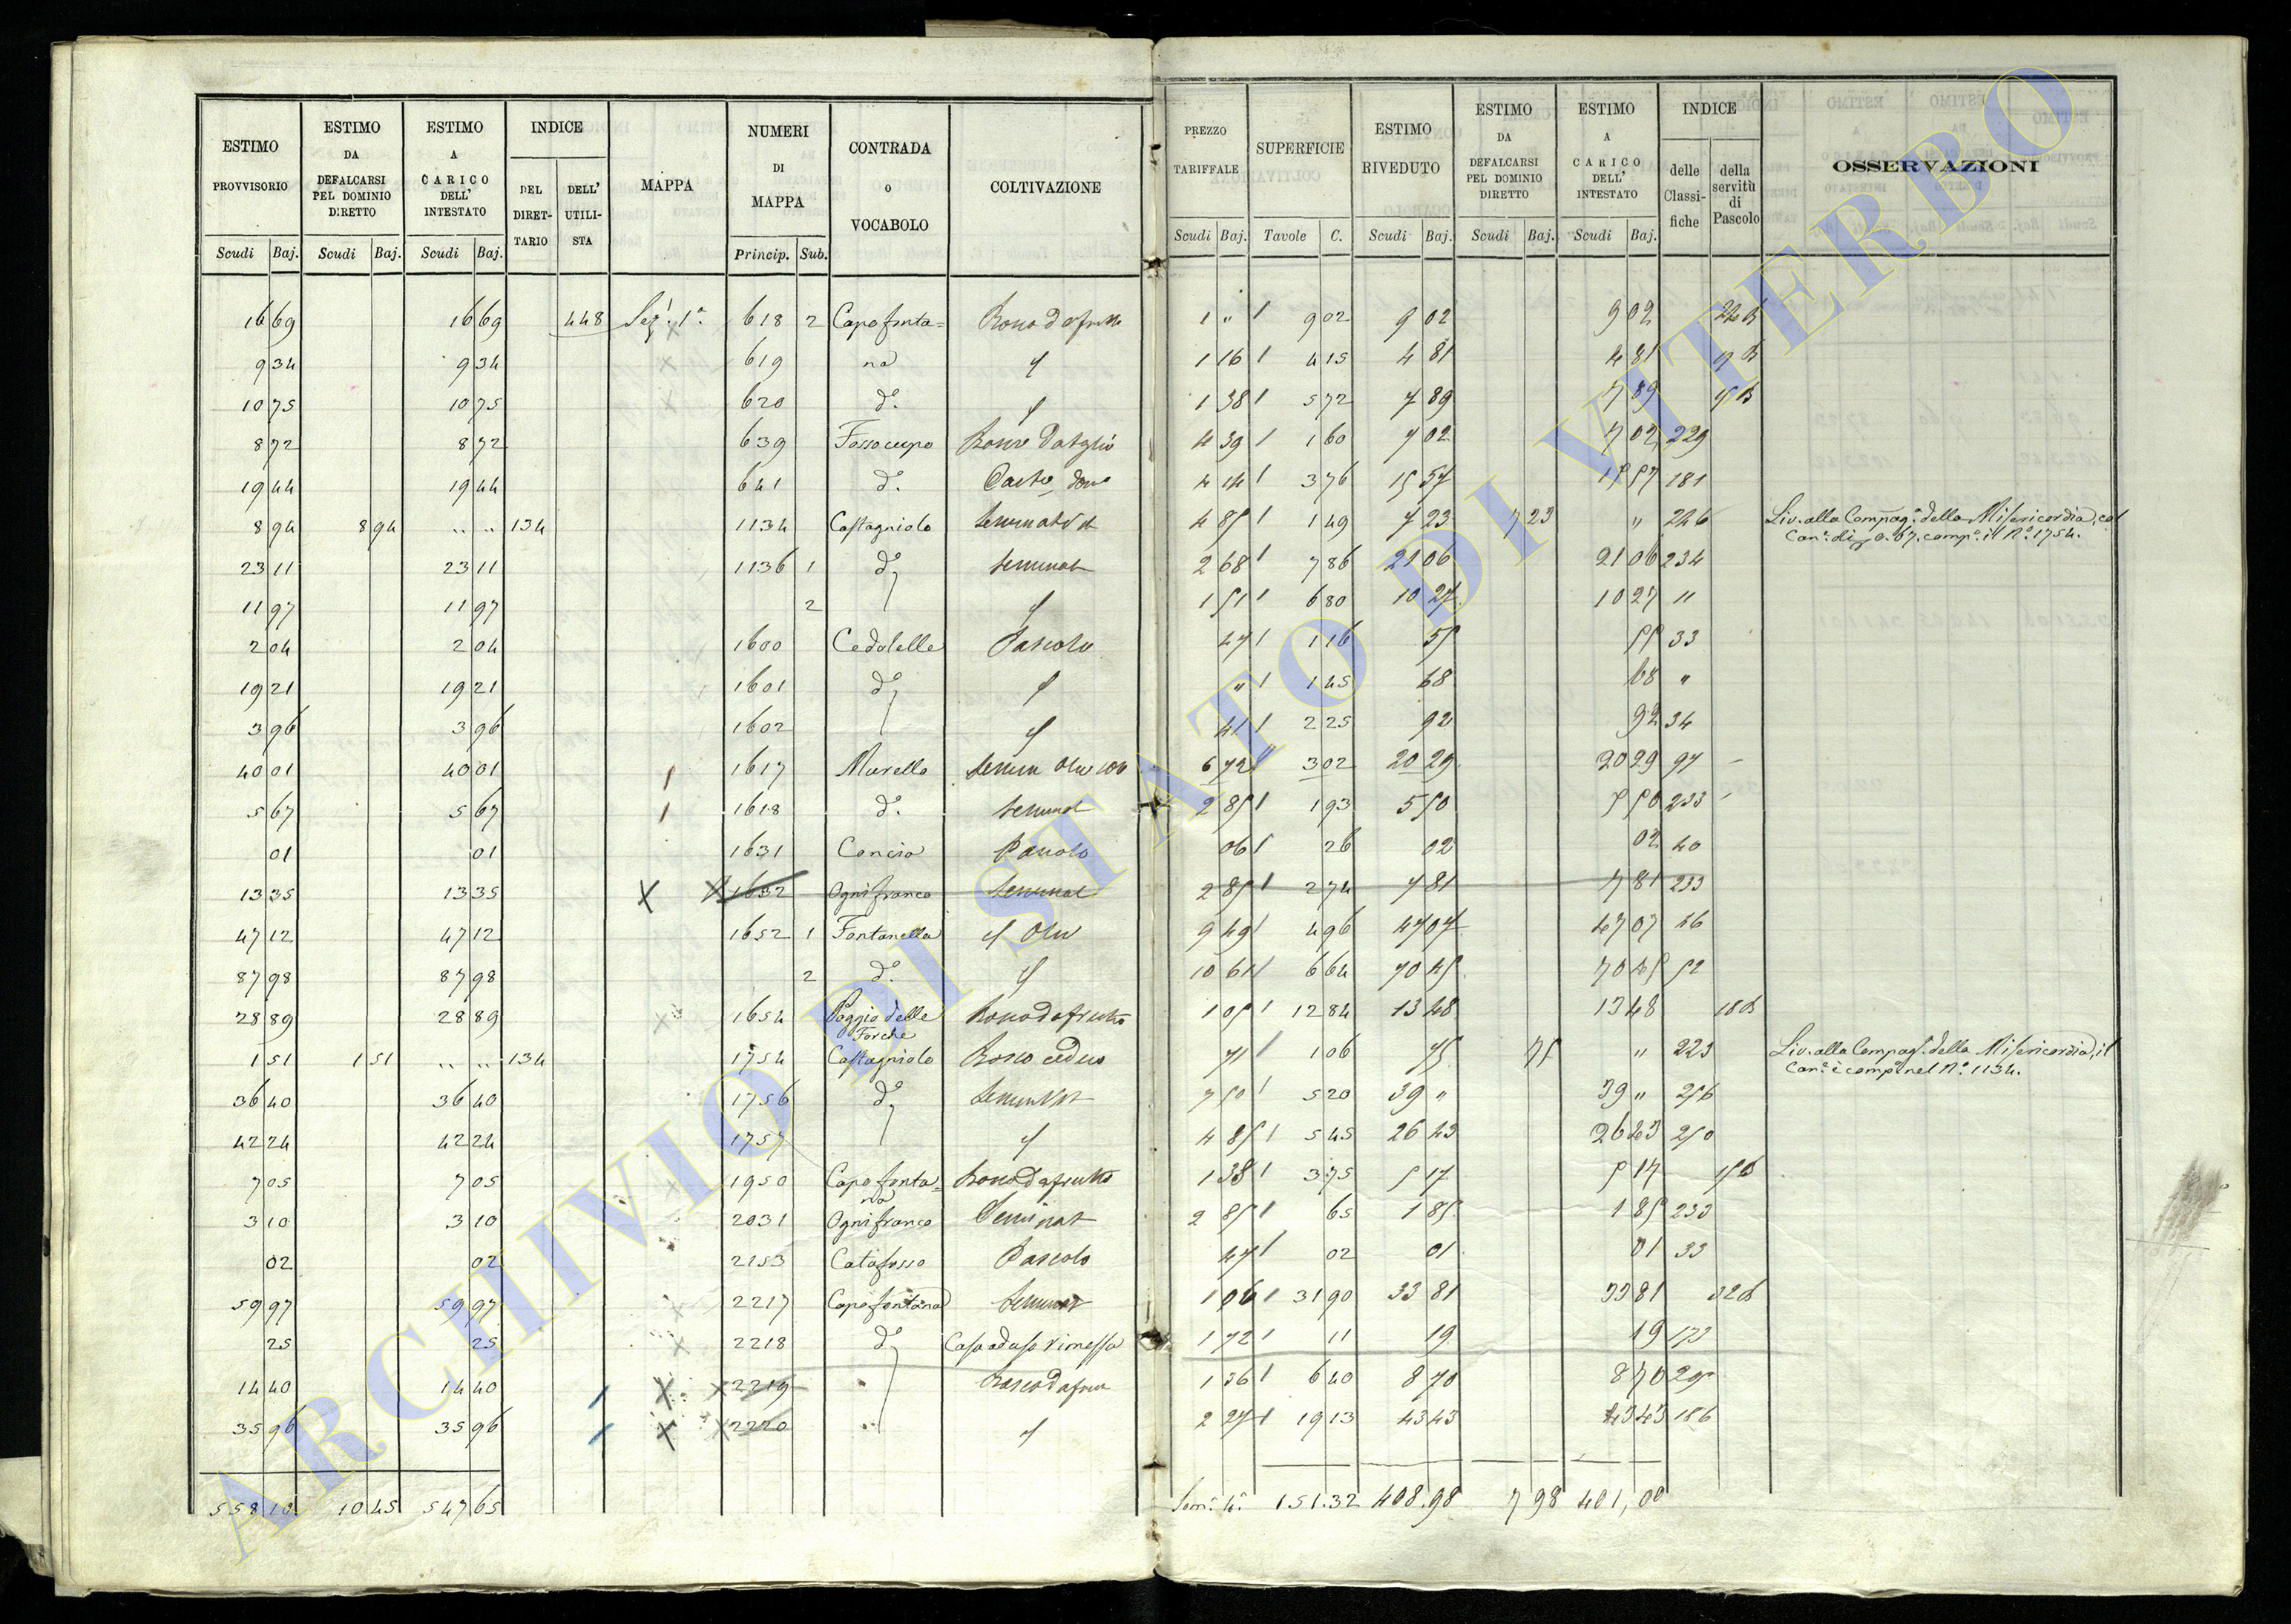 ESTIMO PROVVISORIO | ESTIMO DA DEFALCARSI PEL DOMINIO DIRETTO | ESTIMO A CARICO DELL' INTESTATO | INDICE | MAPPA | NUMERI DI MAPPA | CONTRADA o VOCABOLO | COLTIVAZIONE | PREZZO TARIFFALE | SUPERFICIE | ESTIMO RIVEDUTO | ESTIMO DA DEFALCARSI PEL DOMINIO DIRETTO | ESTIMO A CARICO DELL' INTESTATO | INDICE | OSSERVAZIONI
DEL DIRETTARIO | DELL' UTILISTA | delle Classifiche | della servitù di Pascolo
Scudi | Baj. | Scudi | Baj. | Scudi | Baj. | Princip. | Sub. | Scudi | Baj. | Tavole | C. | Scudi | Baj. | Scudi | Baj. | Scudi | Baj.
16 69 | 16 69 | 448 | Sez. 1ª | 618 | 2 | Capofonta= | 1 " | 9 02 | 9 02 | 9 02
9 34 | 9 34 | 619 | na | 1 16 | 4 15 | 4 81 | 4 81
10 75 | 10 75 | 620 | d.° | 1 38 | 5 72 | 7 89 | 7 89
8 72 | 8 72 | 639 | Fossocupo | 4 39 | 1 60 | 7 02 | 7 02 | 229
19 44 | 19 44 | 641 | d.° | 4 14 | 3 76 | 15 57 | 15 57 | 181
8 94 | 8 94 | .. .. | 134 | 1134 | Castagniolo | 4 85 | 1 49 | 7 23 | 7 23 | " | 246 | Liv. alla Compag.ª della Misericordia, col
Can.e di 0.67. comp.° il N.° 1754.
23 11 | 23 11 | 1136 | 1 | d.° | Seminat | 2 68 | 7 86 | 21 06 | 21 06 | 234
11 97 | 11 97 | 2 | 1 51 | 6 80 | 10 27 | 10 27 | 11
2 04 | 2 04 | 1600 | Cedolelle | Pascolo | 47 | 1 16 | 55 | 55 | 33
19 21 | 19 21 | 1601 | d.° | " | 1 45 | 68 | 68 | "
3 96 | 3 96 | 1602 | 41 | 2 25 | 92 | 92 | 34
40 01 | 40 01 | 1617 | Murello | 6 72 | 3 02 | 20 29 | 20 29 | 97
5 67 | 5 67 | 1618 | d.° | Seminat | 2 85 | 1 93 | 5 50 | 5 50 | 233
01 | 01 | 1631 | Concia | Pascolo | 06 | 26 | 02 | 02 | 40
13 35 | 13 35 | X | 1632 | Ognifranco | Seminat | 2 85 | 2 74 | 7 81 | 7 81 | 233
47 12 | 47 12 | 1652 | 1 | Fontanella | 9 49 | 4 96 | 47 07 | 47 07 | 46
87 98 | 87 98 | 2 | d.° | 10 61 | 6 64 | 70 45 | 70 45 | 52
28 89 | 28 89 | 1654 | Poggio delle Forche | Bosco da frutto | 1 05 | 12 84 | 13 48 | 13 48
1 51 | 1 51 | .. .. | 134 | 1754 | Castagniolo | Bosco ceduo | 71 | 1 06 | 75 | 75 | " | 223 | Liv. alla Compag.ª della Misericordia, il
Can.e è comp.° nel N.° 1134.
36 40 | 36 40 | 1756 | d.° | 7 50 | 5 20 | 39 " | 39 " | 256
42 24 | 42 24 | 1757 | 4 85 | 5 45 | 26 43 | 26 43 | 250
7 05 | 7 05 | 1950 | Capofonta=na | Bosco da frutto | 1 38 | 3 75 | 5 17 | 5 17
3 10 | 3 10 | 2031 | Ognifranco | Seminat | 2 85 | 65 | 1 85 | 1 85 | 233
02 | 02 | 2153 | Catafosso | Pascolo | 47 | 02 | 01 | 01 | 33
59 97 | 59 97 | 2217 | Capofontana | Seminat | 1 06 | 31 90 | 33 81 | 33 81
25 | 25 | 2218 | d.° | Casa ad uso rimessa | 1 72 | 11 | 19 | 19 | 173
14 40 | 14 40 | X | 2219 | 1 36 | 6 40 | 8 70 | 8 70
35 96 | 35 96 | X | 2220 | 2 27 | 19 13 | 43 43 | 43 43 | 186
558 10 | 10 45 | 547 65 | 151.32 | 408.98 | 7 98 | 401,00
ARCHIVIO DI STATO DI VITERBO